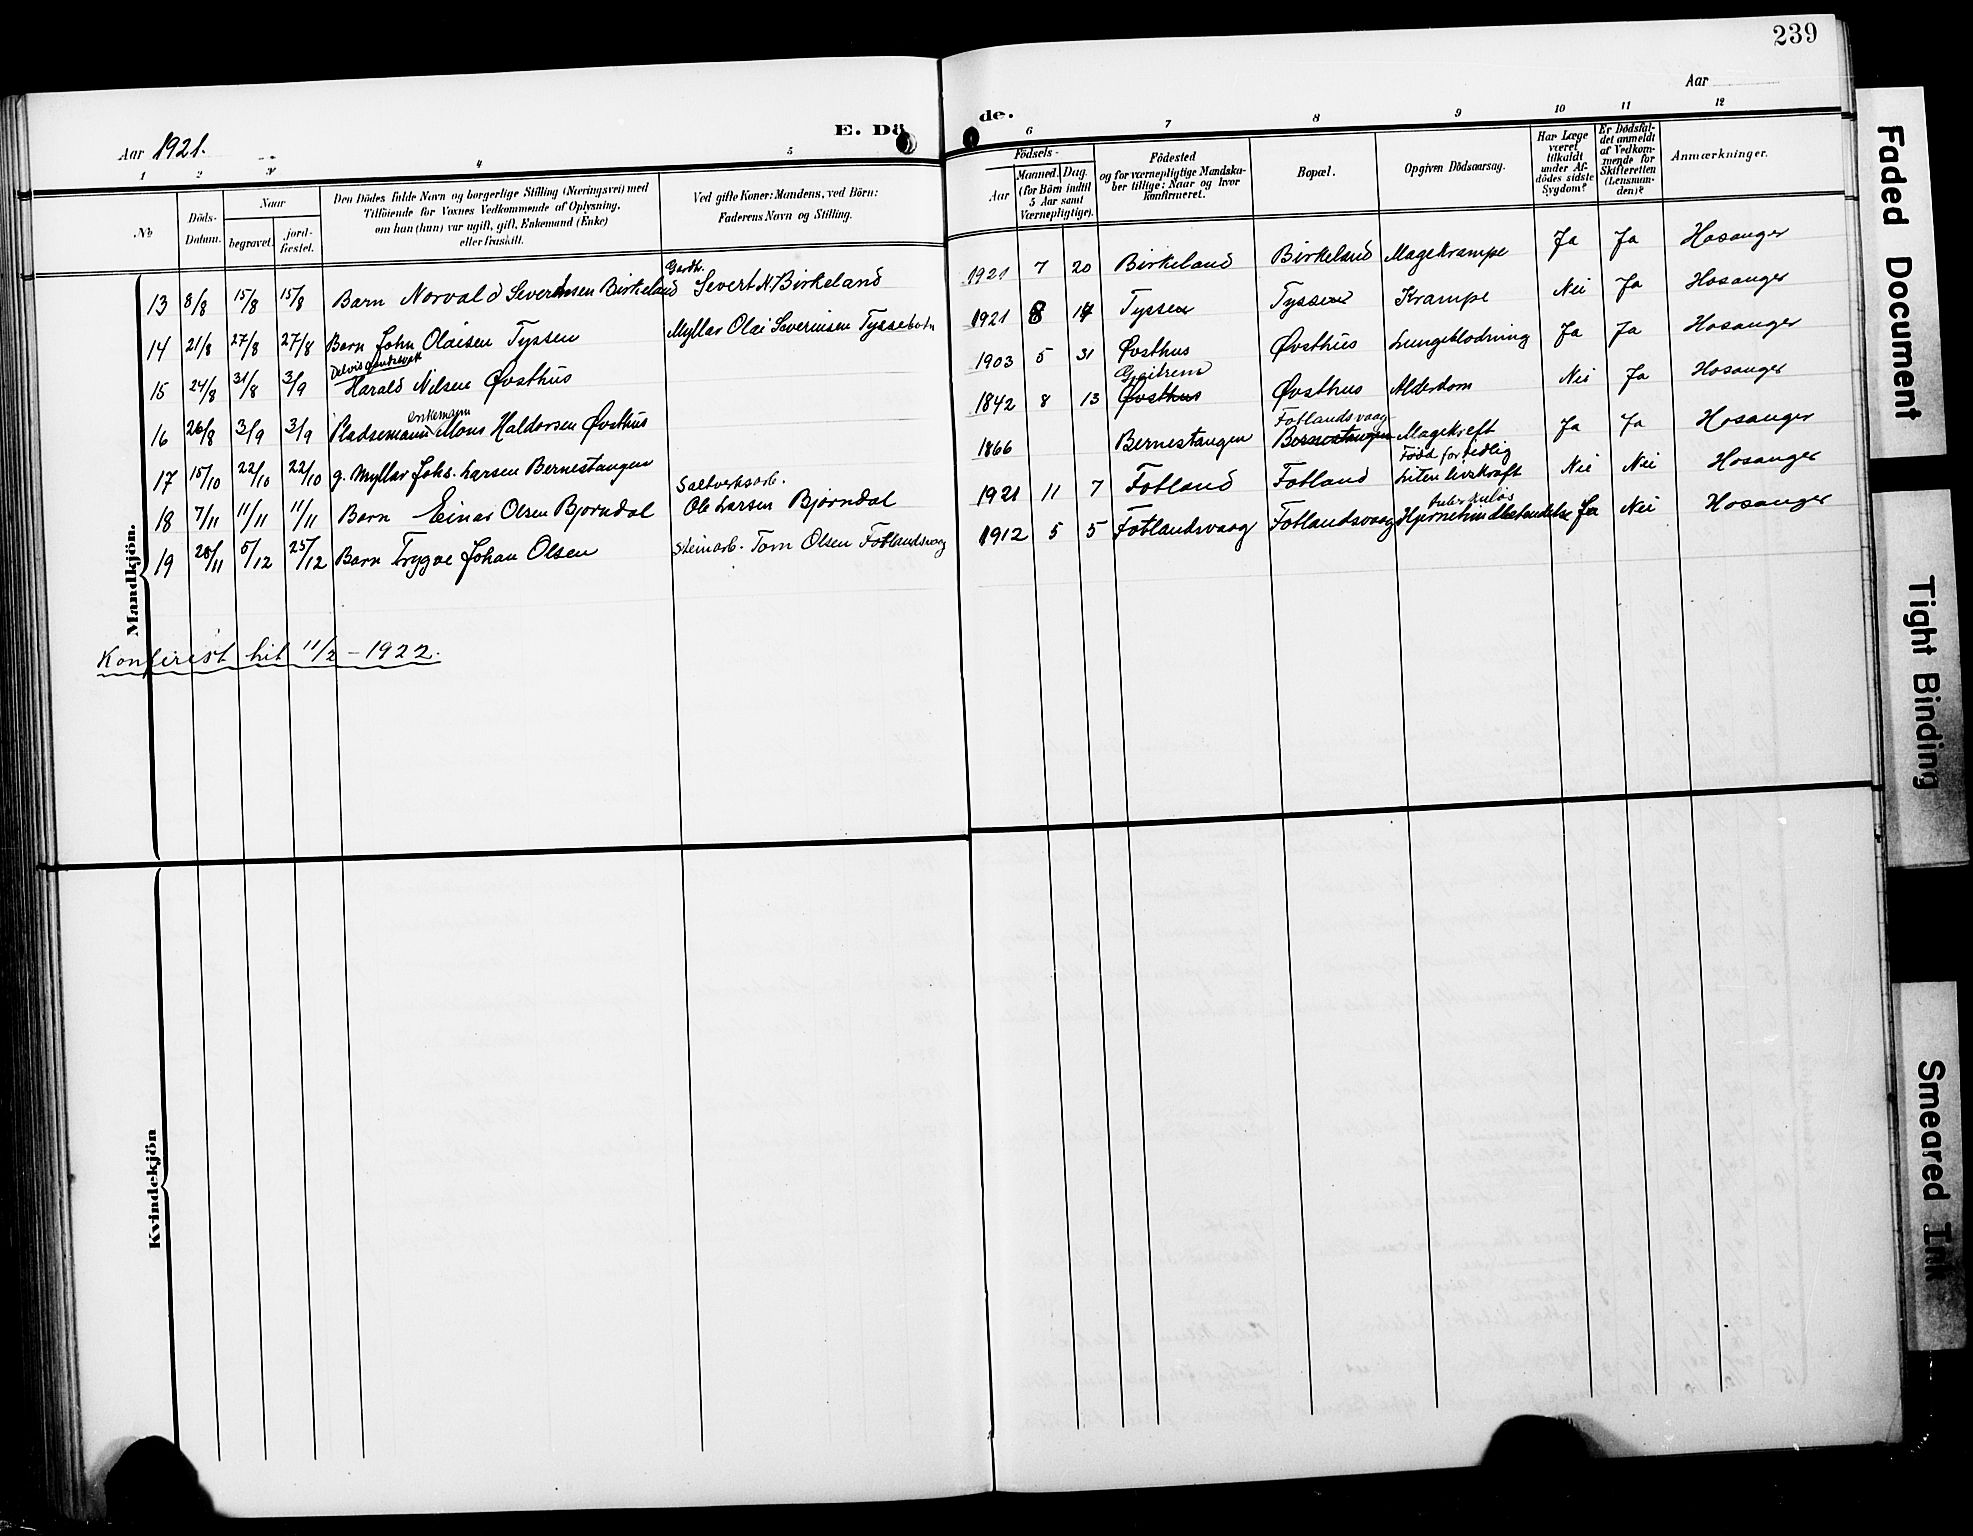 239
Aar 1921.
E. Dö
de.
Aar
1 2 3 4 5
6 7 8 9 10 11 12
No
Döds-Datum.
Naar
begravet.
jord-fæstet.
Den Dödes fulde Navn og borgerlige Stilling (Næringsvei) med
Tilföiende for Voxnes Vedkommende af Oplysning,
om han (hun) var ugift, gift, Enkemand (Enke)
eller fraskilt.
Ved gifte Koner: Mandens, ved Börn:
Faderens Navn og Stilling.
Födsels-
Aar
Maaned. Dag.
(for Börn indtil
5 Aar samt
Værnepligtige).
Födested
og for værnepligtige Mandska-
ber tillige: Naar og hvor
konfirmeret.
Bopæl.
Opgiven Dödsaarsag.
Har Læge
været
tilkaldt
under Af-
dödes sidste
Sygdom?
Er Dödsfal-
det anmeldt
af Vedkom-
mende for
Skifteretten
(Lensman-
den)?
Anmærkninger.
Mandkjön.
13 8/8 15/8 15/8 Barn Norvald Severinsen Birkeland Gardb. Severt N. Birkeland 1921 7 20 Birkeland Birkeland Magekrampe Ja Ja Hosanger
14 21/8 27/8 27/8 Barn John Olaisen Tyssen Myllar Olai Severinsen Tyssebotn 1921 8 14 Tyssen Tyssen Krampe Nei Ja Hosanger
15 24/8 31/8 3/9 Delvis Harald Nilsen Øvsthus 1903 5 31 Øvsthus Øvsthus Lungeblodning Ja Ja Hosanger
16 26/8 3/9 3/9 Pladsemann enkemann Mons Haldorsen Øvsthus 1842 8 13 Øvsthus Øvsthus Alderdom Nei Ja Hosanger
17 15/10 22/10 22/10 g. Myllar Johs. Larsen Bernestangen 1866 Bernestangen Fotlandsvaag Bernestangen Magekreft Ja Ja Hosanger
18 7/11 11/11 11/11 Barn Einar Olsen Bjørndal Saltverksarb. Ole Larsen Bjørndal 1921 11 7 Fotland Fotland Född for tidlig Liten livskraft Nei Nei Hosanger
19 28/11 5/12 25/12 Barn Trygve Johan Olsen Steinarb. Tom Olsen Fotlandsvaag 1912 5 5 Fotlandsvaag Fotlandsvaag tuberkuløs Hjernehindebetendelse Ja Nei Hosanger
Konferert hit 11/2 - 1922.
Kvindekjön
Faded Document
Tight Binding
Smeared Ink